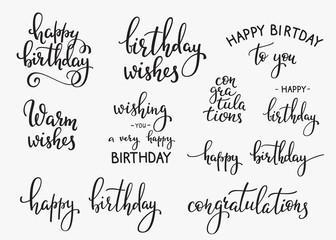 happy
birthday
birthday
wishes
HAPPY BIRTDAY
to you
Warm
wishes
wishing
- YOU -
a very happy
BIRTHDAY
con
gra
tula
tions
- HAPPY -
birthday
happy birthday
happy birthday
congratulations